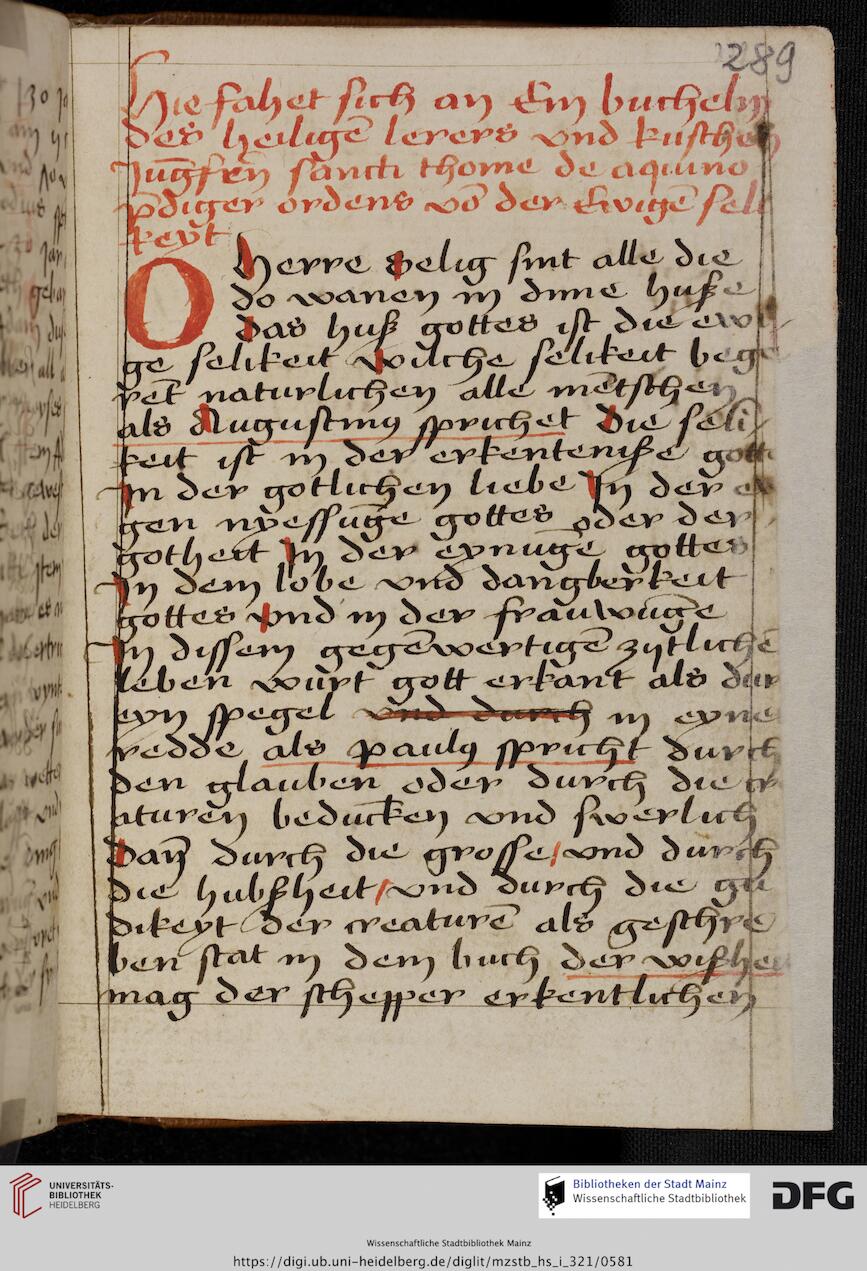 289
Hie fahet sich an Ein buchelin
des heiligē lerers vnd kuschen
Jūgfrēn sancti thome de aquino
p̄diger ordens vō der Ewigē seli
keyt
O Herre selig sint alle die
do wanen in dime huße
das huß gottes ist die ewi
ge selikeit wilche selikeit bege
rēt naturlichen alle mētschen
als Augustinꝰ sprichet Die seli
keit ist in der erkenteniße gotts
In der gotlichen liebe In der ew
gen nyessūge gottes oder der
gotheit In der eynūge gottes
In dem lobe vnd dangberkeit
gottes vnd in der frauwūge
In dissem gegēwertigē zijtlichē
leben wurt gott erkant als dur
eyn spegel vnd durch in eyne
redde als paulꝰ spricht durch
den glauben oder durch die cr
aturen beducken vnd swerlich
Dan̄ durch die grosse / vnd durch
die hubßheit / vnd durch die gu
dikeyt der creaturē als geschre
ben stat in dem buch der wißheit
mag der schepper erkentlichen
UNIVERSITÄTS-
BIBLIOTHEK
HEIDELBERG
Bibliotheken der Stadt Mainz
Wissenschaftliche Stadtbibliothek
DFG
Wissenschaftliche Stadtbibliothek Mainz
https://digi.ub.uni-heidelberg.de/diglit/mzstb_hs_i_321/0581